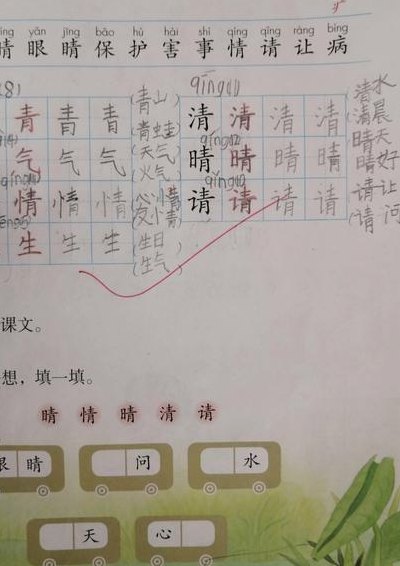 yǎn jīng bǎo hù hài shì qíng qǐng ràng bìng
睛 眼 睛 保 护 害 事 情 请 让 病
qīng(11)
青 青 青 (青山) 清 清 清 清 (清水)
(青蛙) (清晨)
气 气 气 (天气) 晴 晴 晴 晴 (晴天)
(火气) (晴好)
情 情 情 (心情) 请 请 请 请 (请让)
生 生 生 (生日) (请问)
(生气)
课文。
想，填一填。
睛 情 晴 清 请
眼 睛 问 水
天 心